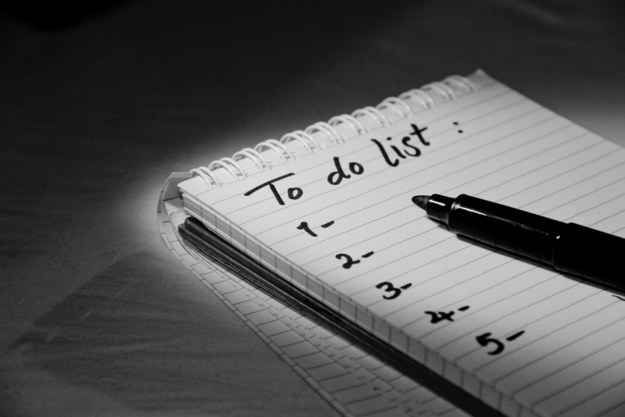 To do list :
1-
2-
3-
4-
5-